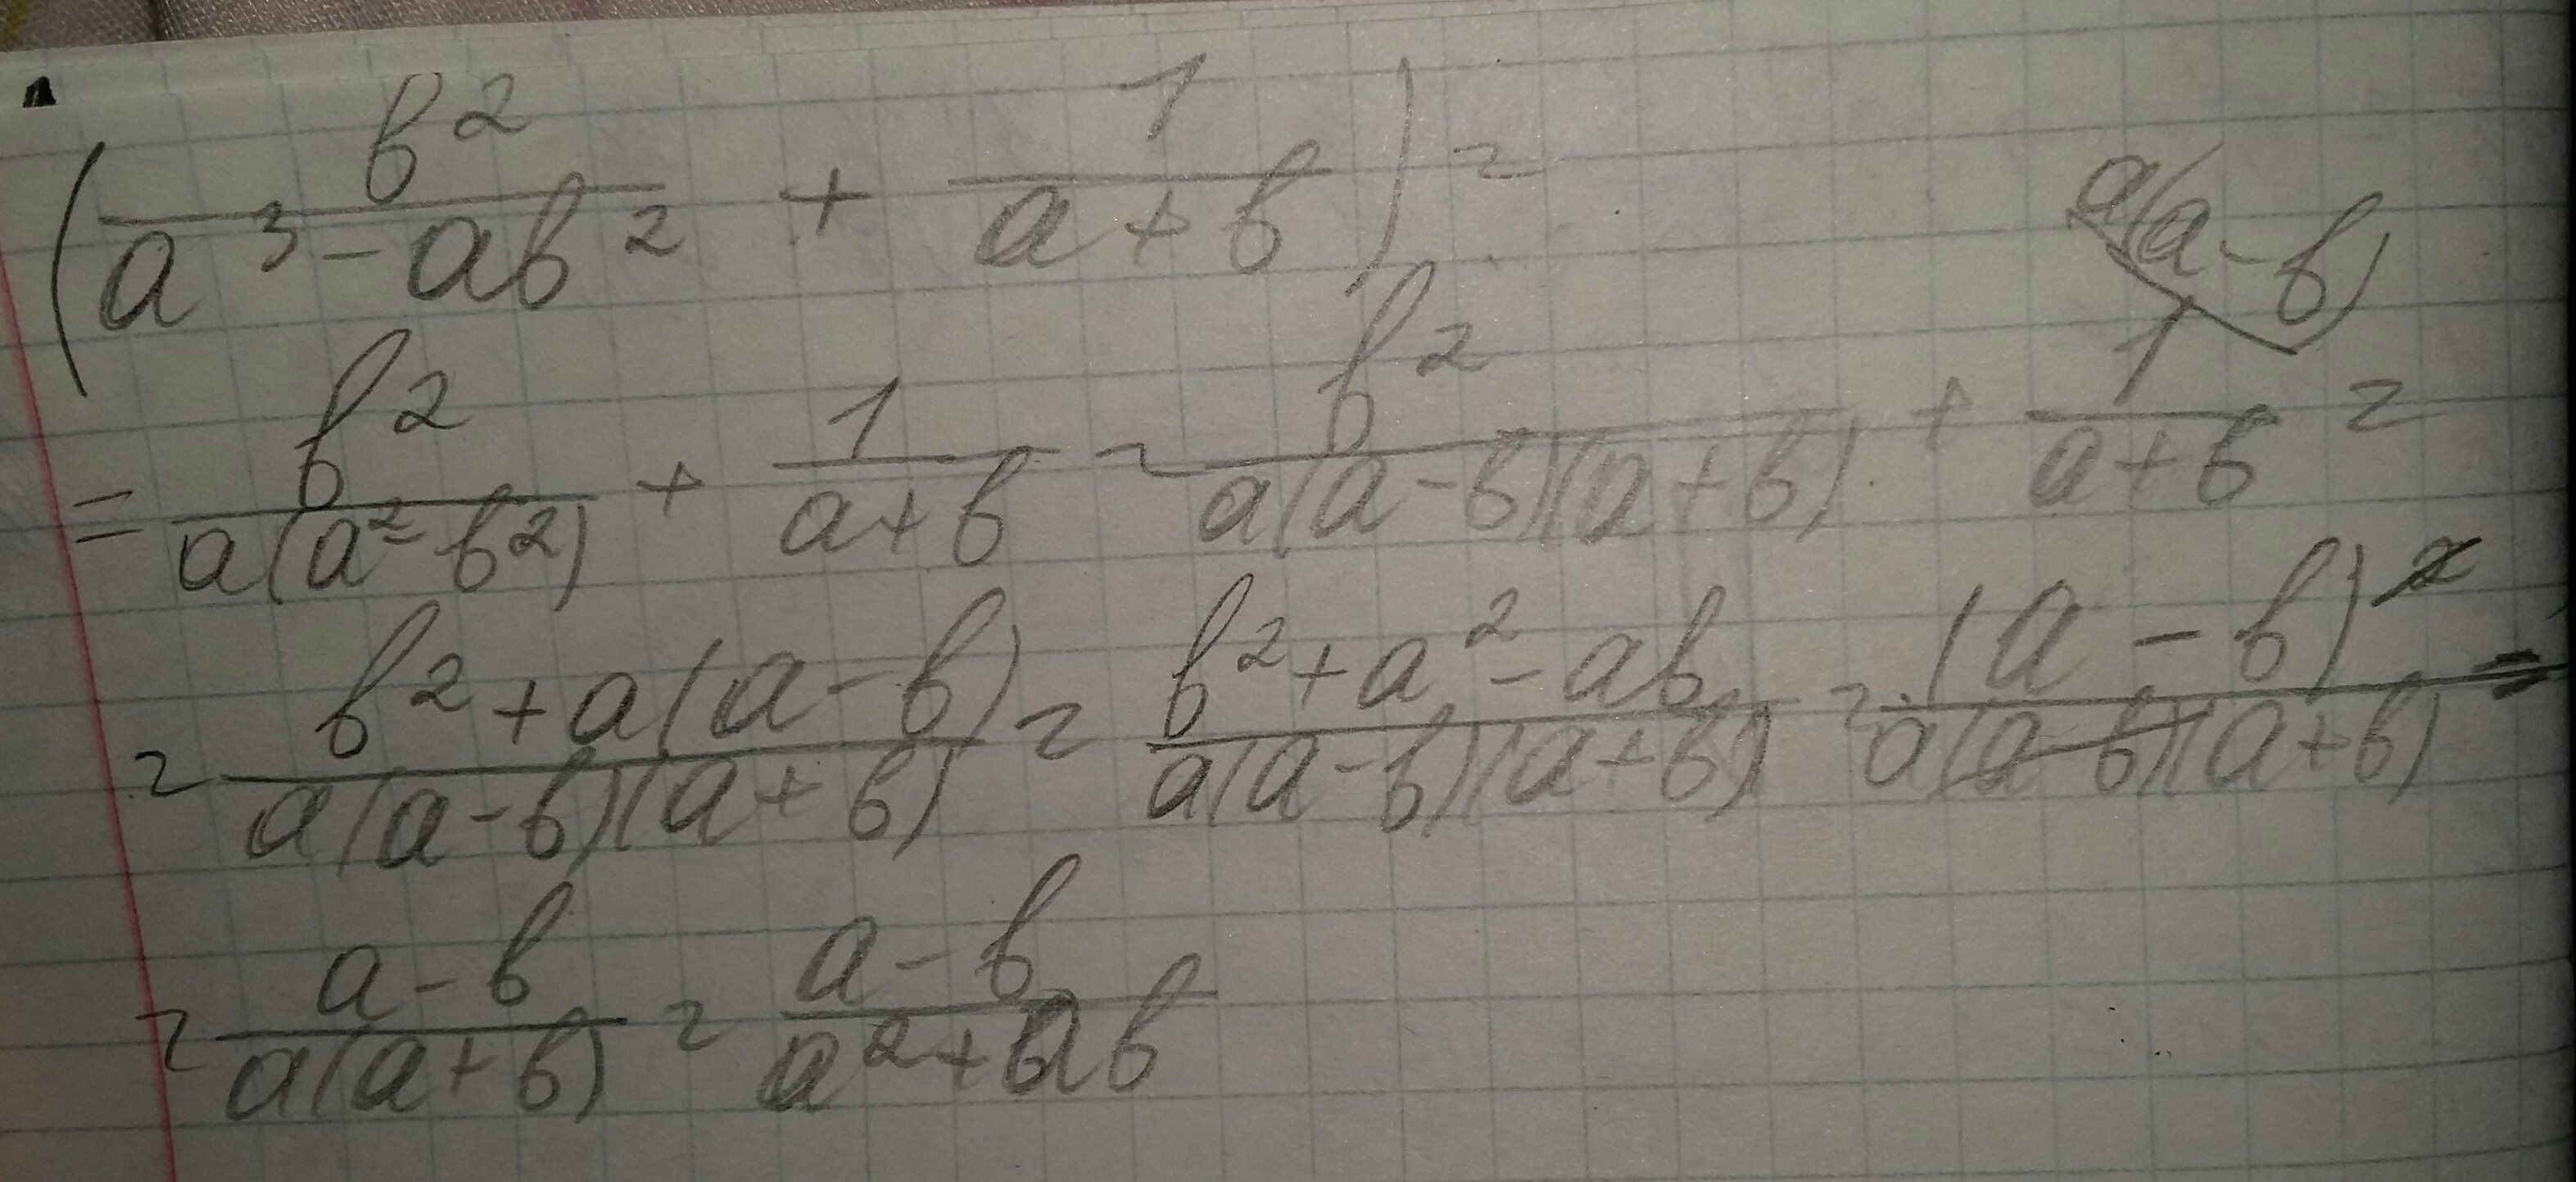 (b²/(a³-ab²) + 1/(a+b)) =
a(a-b)
= b²/(a(a²-b²)) + 1/(a+b) = b²/(a(a-b)(a+b)) + 1/(a+b) =
= (b²+a(a-b))/(a(a-b)(a+b)) = (b²+a²-ab)/(a(a-b)(a+b)) = (a-b)²/(a(a-b)(a+b)) =
= (a-b)/(a(a+b)) = (a-b)/(a²+ab)